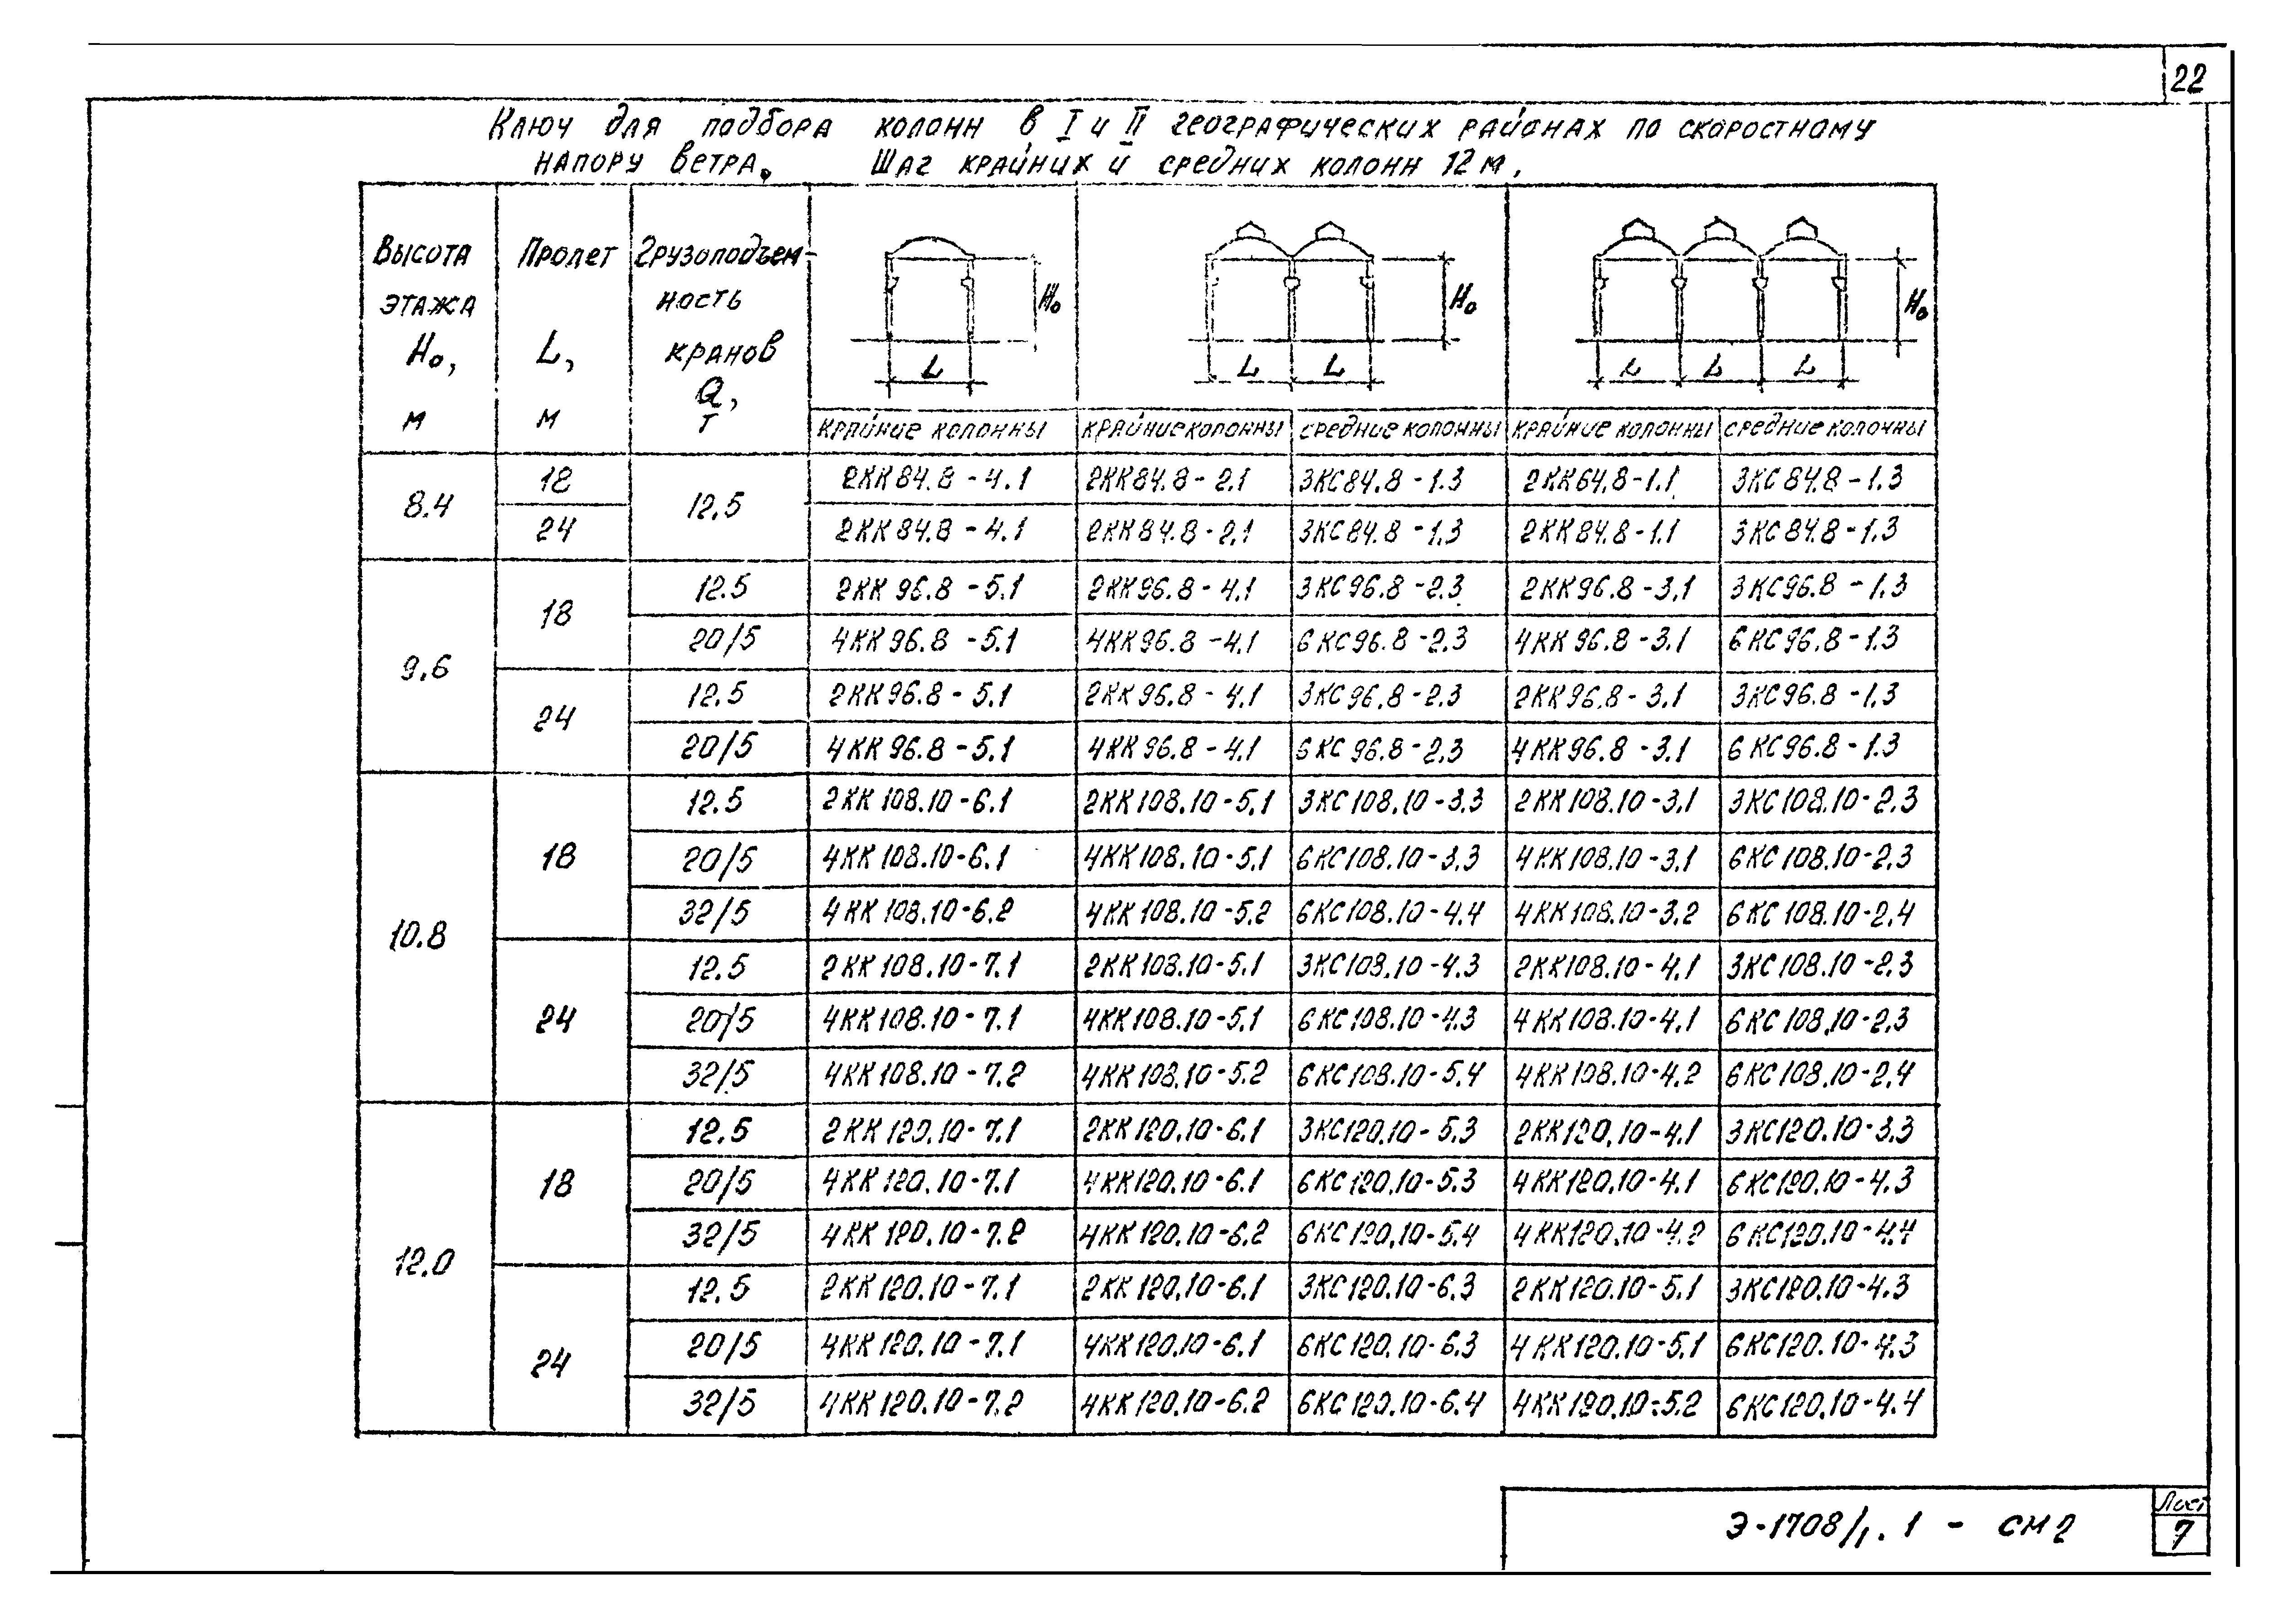 22
Ключ для подбора колонн в I и II географических районах по скоростному
напору ветра. Шаг крайних и средних колонн 12 м.
Высота этажа H₀, м
Пролет L, м
Грузоподъем-ность кранов Q, т
H₀ H₀ H₀
L L L L L L
крайние колонны крайние колонны средние колонны крайние колонны средние колонны
8.4 18 12.5 2КК84.8-4.1 2КК84.8-2.1 3КС84.8-1.3 2КК64.8-1.1 3КС84.8-1.3
24 2КК84.8-4.1 2КК84.8-2.1 3КС84.8-1.3 2КК84.8-1.1 3КС84.8-1.3
9.6 18 12.5 2КК96.8-5.1 2КК96.8-4.1 3КС96.8-2.3 2КК96.8-3.1 3КС96.8-1.3
20/5 4КК96.8-5.1 4КК96.8-4.1 6КС96.8-2.3 4КК96.8-3.1 6КС96.8-1.3
24 12.5 2КК96.8-5.1 2КК96.8-4.1 3КС96.8-2.3 2КК96.8-3.1 3КС96.8-1.3
20/5 4КК96.8-5.1 4КК96.8-4.1 6КС96.8-2.3 4КК96.8-3.1 6КС96.8-1.3
10.8 18 12.5 2КК108.10-6.1 2КК108.10-5.1 3КС108.10-3.3 2КК108.10-3.1 3КС108.10-2.3
20/5 4КК108.10-6.1 4КК108.10-5.1 6КС108.10-3.3 4КК108.10-3.1 6КС108.10-2.3
32/5 4КК108.10-6.2 4КК108.10-5.2 6КС108.10-4.4 4КК108.10-3.2 6КС108.10-2.4
24 12.5 2КК108.10-7.1 2КК108.10-5.1 3КС108.10-4.3 2КК108.10-4.1 3КС108.10-2.3
20/5 4КК108.10-7.1 4КК108.10-5.1 6КС108.10-4.3 4КК108.10-4.1 6КС108.10-2.3
32/5 4КК108.10-7.2 4КК108.10-5.2 6КС108.10-5.4 4КК108.10-4.2 6КС108.10-2.4
12.0 18 12.5 2КК120.10-7.1 2КК120.10-6.1 3КС120.10-5.3 2КК120.10-4.1 3КС120.10-3.3
20/5 4КК120.10-7.1 4КК120.10-6.1 6КС120.10-5.3 4КК120.10-4.1 6КС120.10-4.3
32/5 4КК120.10-7.2 4КК120.10-6.2 6КС120.10-5.4 4КК120.10-4.2 6КС120.10-4.4
24 12.5 2КК120.10-7.1 2КК120.10-6.1 3КС120.10-6.3 2КК120.10-5.1 3КС120.10-4.3
20/5 4КК120.10-7.1 4КК120.10-6.1 6КС120.10-6.3 4КК120.10-5.1 6КС120.10-4.3
32/5 4КК120.10-7.2 4КК120.10-6.2 6КС120.10-6.4 4КК120.10-5.2 6КС120.10-4.4
Э-1708/1.1 - СМ2
Лист
7